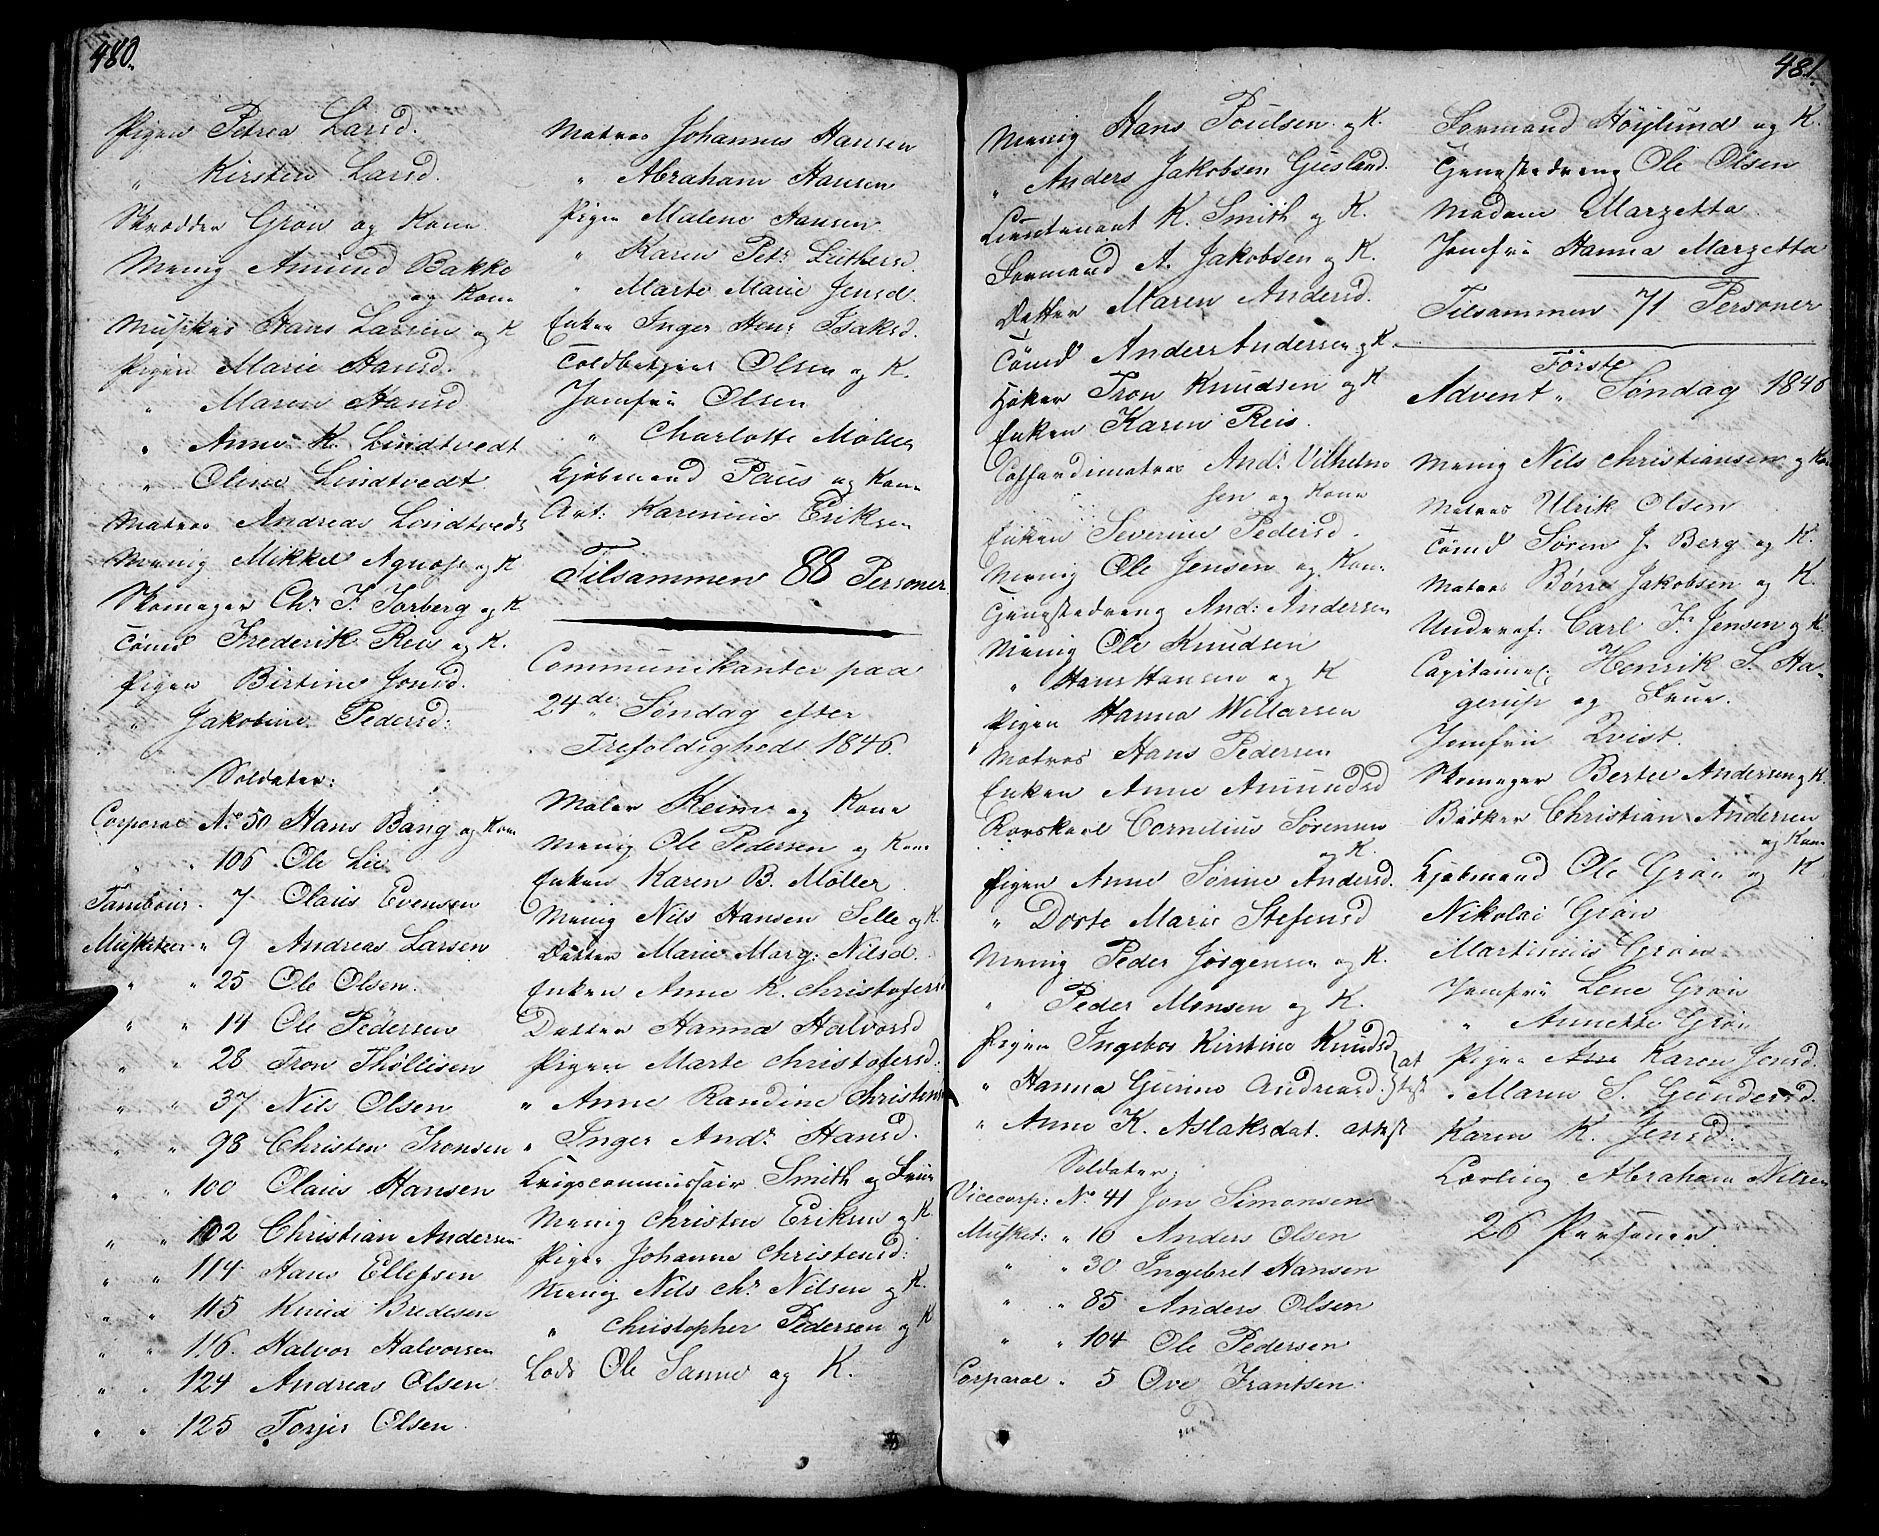 480.
Pigen Petrea Larsd.
" Kirsten Larsd.
Skrædder Grøn og Kone
Menig Amund Bakke
og Kone
Musiker Hans Larsen og K
Pigen Marie Hansd.
" Maren Hansd
" Anne K. Lindtvedt
" Oline Lindtvedt
Matros Andreas Lindtvedt
Menig Mikkel Aguose og K
Skomager Chr. F. Torberg og K
Tømd Frederik Reis og K.
Pigen Birtine Jonsd.
" Jakobine Pedersd:
Soldater:
Corporal No 50 Hans Bang og Kone
" 106 Ole Lie
Tambour " 7 Olaus Evensen
Musketeer " 9 Andreas Larsen
" " 25 Ole Olsen.
" " 14 Ole Pedersen
" " 28 Tron Thollisen
" " 37 Nils Olsen
" " 98 Christen Tronsen
" " 100 Olaus Hansen
" " 102 Christian Andersen
" " 114 Hans Ellefsen
" " 115 Knud Bredesen
" " 116. Halvor Halvorsen
" " 124 Andreas Olsen
" " 125 Torjer Olsen.
Matros Johannes Hansen
" Abraham Hansen
Pigen Malene Hansen
" Karen Petr. Luthersd.
" Marte Marie Jensd.
Enken Inger Henr Isaksd.
Toldbetjent Olsen og K.
Jomfru Olsen
" Charlotte Møller
Kjøbmand Paus og Kone
Art: Karenius Eriksen
Tilsammen 88 Personer
Communikanter paa
24de Søndag efter
Trefoldigheds 1846.
Maler Keim og Kone
Menig Ole Pedersen og Kone
Enken Karen B. Møller
Menig Nils Hansen Selle og K
Datter Marie Marg: Nilsd.
Enken Anne K. Christofersd
Datter Hanna Halvorsd
Pigen Marte Christofersd:
" Anne Randine Christensd
" Inger Andr. Hansd.
Krigscommissair Smith og Frue
Menig Christen Eriksen og K
Pigen Johanne Christensd:
Menig Nils Chr. Nilsen og K.
" Christopher Pedersen og K
Lods Ole Sanne og K.
481.
Menig Hans Poulsen og K.
" Anders Jakobsen Gusland.
Lieutenant K. Smith og K.
Formand A. Jakobsen og K.
Datter Maren Andersd.
Tømd Anders Andersen og K.
Høker Tron Knudsen og K
Enken Karen Reis.
Coffardimatros And. Vilhelm
sen og Kone
Enken Severine Pedersd.
Menig Ole Jensen og Kone
Tjenestedreng And: Andersen
Menig Ole Knudsen
" Hans Hansen og K
Pigen Hanna Willarsen
Matros Hans Pedersen
Enken Anne Amundsd
Rorskarl Cornelius Sørensen
og K.
Pigen Anne Sørine Andersd.
" Dorte Marie Stefensd
Menig Peder Jørgensen og K.
" Peder Monsen og K.
Pigen Ingebor Kirstine Knudsd
" Hanna Gurine Andreasd. } at
test
" Anne K. Aslaksdat. attest
Soldater:
Vicecorp: No 41 Jon Simonsen
Musket: " 16 Anders Olsen
" " 30 Ingebret Hansen
" " 85 Anders Olsen
" " 104 Ole Pedersen
Corporal " 5 Ove Frantsen.
Formand Høylund og K.
Tjenestedreng Ole Olsen
Madam Marzetta.
Jomfru Hanna Marzetta
Tilsammen 71 Personer
Første
Advent " Søndag 1846
Menig Nils Christiansen og Kone
Matros Ulrik Olsen
Tømd Søren J. Berg og K.
Matros Børre Jakobsen og K.
Underof: Carl Fr. Jensen og K
Capitaine Henrik S. Ha-
gerup og Frue.
Jomfru Qvist.
Skomager Berte Andersen og K.
Bødker Christian Andersen
og Kone
Kjøbmand Ole Grøn og K
Nikolai Grøn
Martinius Grøn
Jomfru Lene Grøn
" Annette Grøn
Pigen Ane Karen Jensd.
" Maren S. Gundersd.
Karen K. Jensd.
Lærling Abraham Nilsen
26 Personer.